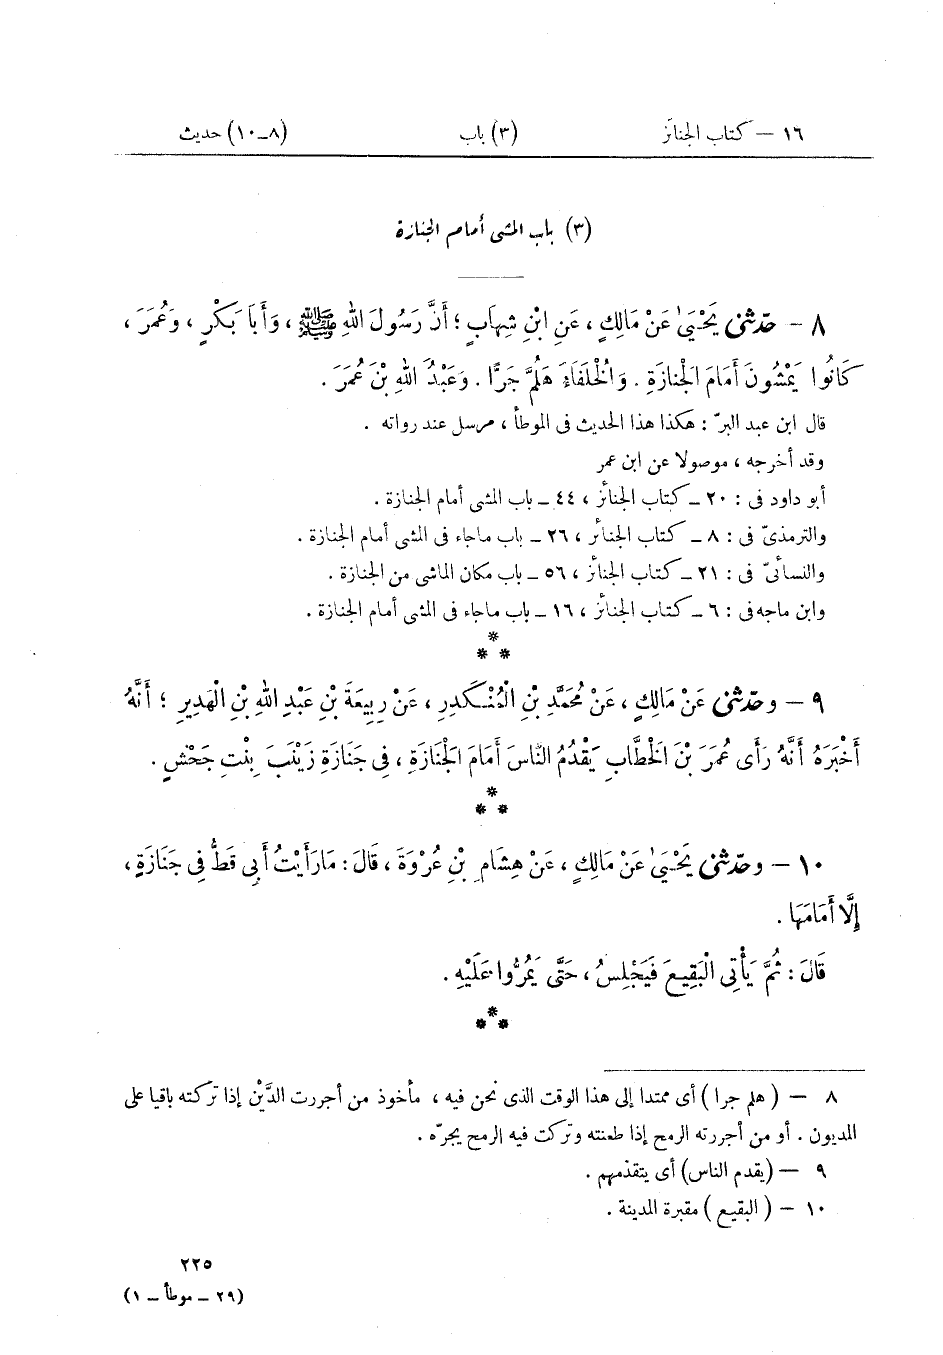 ١٦ – كتاب الجنائز (٣) باب (٨–١٠) حديث
(٣) باب المشى أمام الجنازة
٨ – حدّثنى يَحْيَىٰ عَنْ مَالِكٍ ، عَنِ ابْنِ شِهَابٍ ؛ أَنَّ رَسُولَ اللهِ ﷺ ، وَأَبَا بَكْرٍ ، وَعُمَرَ ،
كَانُوا يَمْشُونَ أَمَامَ الْجَنَازَةِ . وَالْخُلَفَاءَ هَلُمَّ جَرًّا . وَعَبْدُ اللهِ بْنَ عُمَرَ .
قال ابن عبد البرّ : هكذا هذا الحديث فى الموطأ ، مرسل عند رواته .
وقد أخرجه ، موصولا عن ابن عمر
أبو داود فى : ٢٠ – كتاب الجنائز ، ٤٤ – باب المشى أمام الجنازة .
والترمذىّ فى : ٨ – كتاب الجنائز ، ٢٦ – باب ماجاء فى المشى أمام الجنازة .
والنسائىّ فى : ٢١ – كتاب الجنائز ، ٥٦ – باب مكان الماشى من الجنازة .
وابن ماجه فى : ٦ – كتاب الجنائز ، ١٦ – باب ماجاء فى المشى أمام الجنازة .
*
* *
٩ – وحدّثنى عَنْ مَالِكٍ ، عَنْ مُحَمَّدِ بْنِ الْمُنْكَدِرِ ، عَنْ رَبِيعَةَ بْنِ عَبْدِ اللهِ بْنِ الْهَدِيرِ ؛ أَنَّهُ
أَخْبَرَهُ أَنَّهُ رَأَى عُمَرَ بْنَ الْخَطَّابِ يَقْدُمُ النَّاسَ أَمَامَ الْجَنَازَةِ ، فِى جَنَازَةِ زَيْنَبَ بِنْتِ جَحْشٍ .
*
* *
١٠ – وحدّثنى يَحْيَىٰ عَنْ مَالِكٍ ، عَنْ هِشَامِ بْنِ عُرْوَةَ ، قَالَ : مَا رَأَيْتُ أَبِى قَطُّ فِى جَنَازَةٍ ،
إِلَّا أَمَامَهَا .
قَالَ : ثُمَّ يَأْتِى الْبَقِيعَ فَيَجْلِسُ ، حَتَّى يَمُرُّوا عَلَيْهِ .
*
* *
٨ – (هلم جرا) أى ممتدا إلى هذا الوقت الذى نحن فيه ، مأخوذ من أجررت الدَّيْن إذا تركته باقيا على
المديون . أو من أجررته الرمح إذا طعنته وتركت فيه الرمح يجرّه .
٩ – (يقدم الناس) أى يتقدمهم .
١٠ – (البقيع) مقبرة المدينة .
٢٢٥
(٢٩ – موطأ – ١)